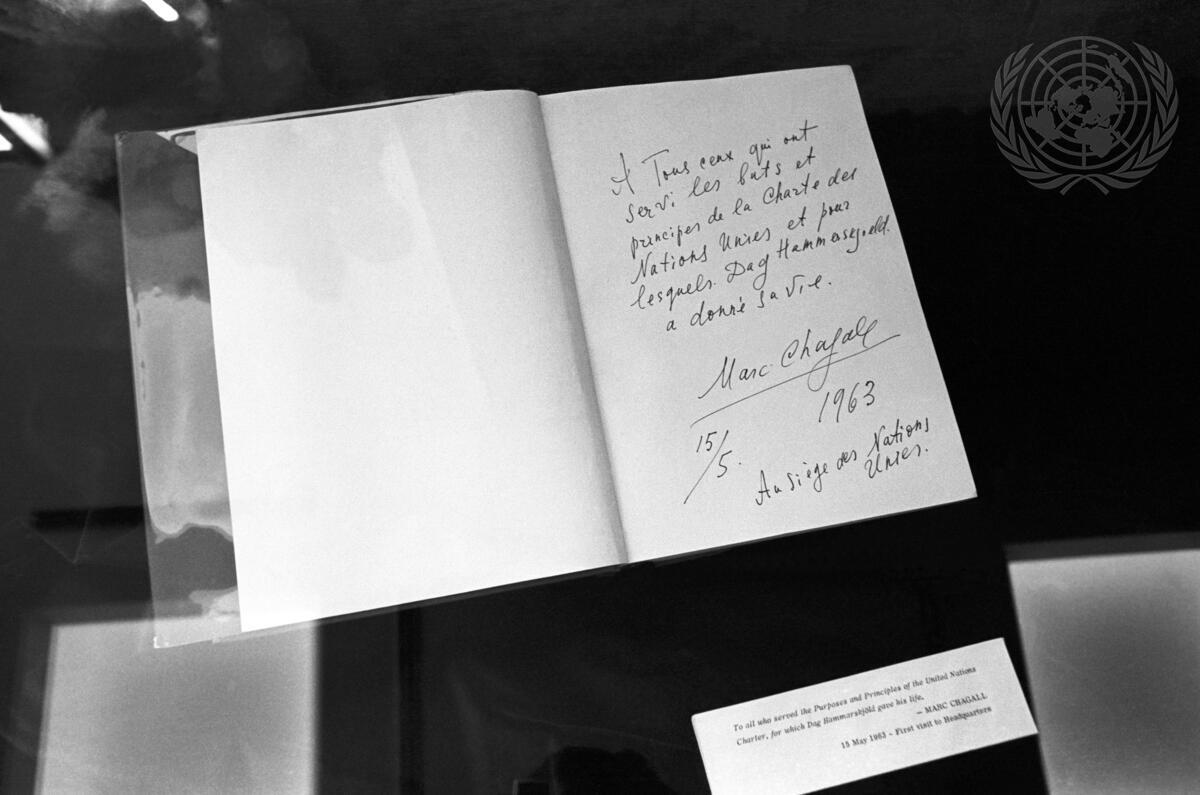 A Tous ceux qui ont
servi les buts et
principes de la Charte des
Nations Unies et pour
lesquels. Dag Hammersgoeld.
a donné sa vie.
Marc Chagall
1963
15/5.
Au siège des Nations
Unies.
To all who served the Purposes and Principles of the United Nations
Charter, for which Dag Hammarskjöld gave his life.
— MARC CHAGALL
15 May 1963 - First visit to Headquarters